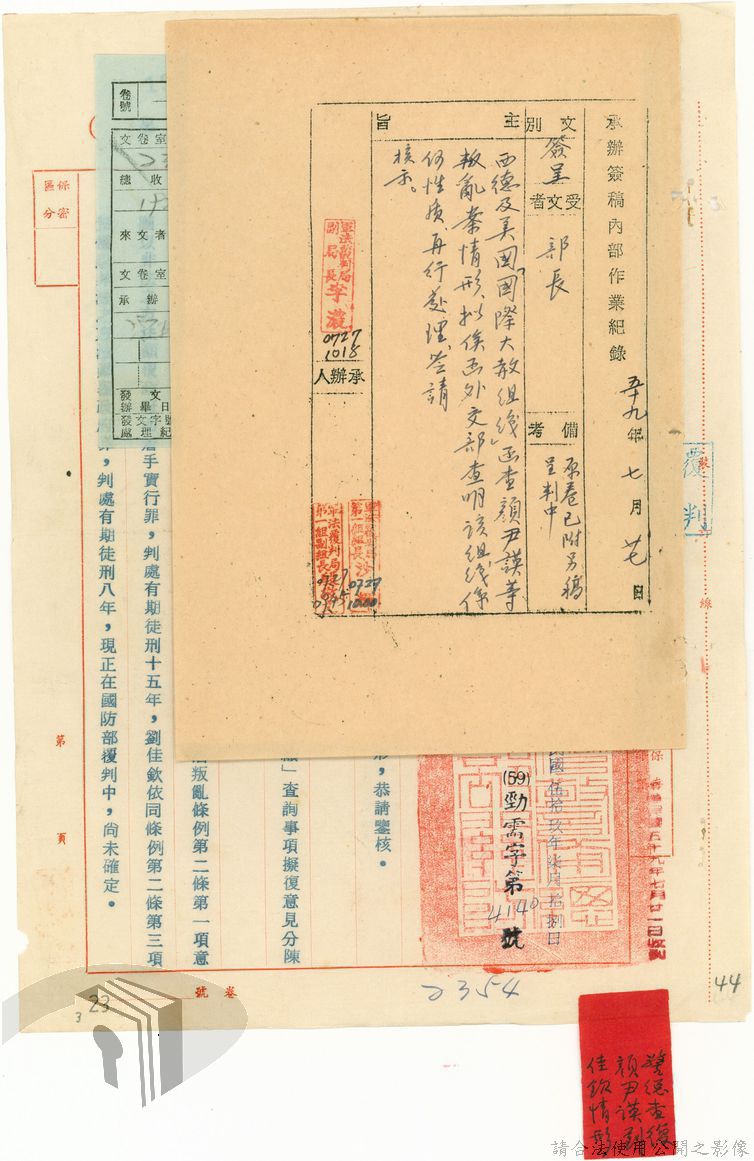 承辦簽稿內部作業紀錄
五十九年七月廿七日
文別
簽呈
受文者
部長
備考
原卷已附另稿
呈判中
主旨
西德及美國「國際大赦組織」函查顏尹謨等
叛亂案情形，擬俟函外交部查明該組織係
何性質再行處理，簽請
核示。
軍法覆判局
副局長李濃
0727
1018
承辦人
軍法覆判局
第一組副組長
0727
1000
卷號
文卷室
總收
來文者
文卷室
承辦
發文
辦畢日
發文字號
處理紀
保密
區分
覆判
裝
線
(59)勁需字第4140號
民國伍拾玖年柒月拾捌日
五十九年七月廿一日收到
形，恭請鑒核。
織」查詢事項擬復意見分陳
治叛亂條例第二條第一項意
着手實行罪，判處有期徒刑十五年，劉佳欽依同條例第二條第三項
罪，判處有期徒刑八年，現正在國防部覆判中，尚未確定。
第
頁
卷號
2354
44
23
3
警總查復
顏尹謨劉
佳欽情形
請合法使用公開之影像